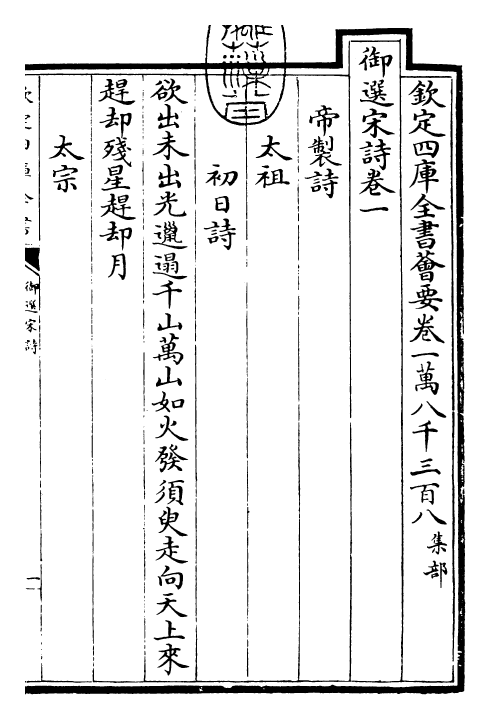 欽定四庫全書薈要卷一萬八千三百八集部
御選宋詩卷一
帝製詩
太祖
初日詩
欲出未出光邋遢千山萬山如火發須臾走向天上來
趕却殘星趕却月
太宗
欽定四庫全書
御選宋詩
一